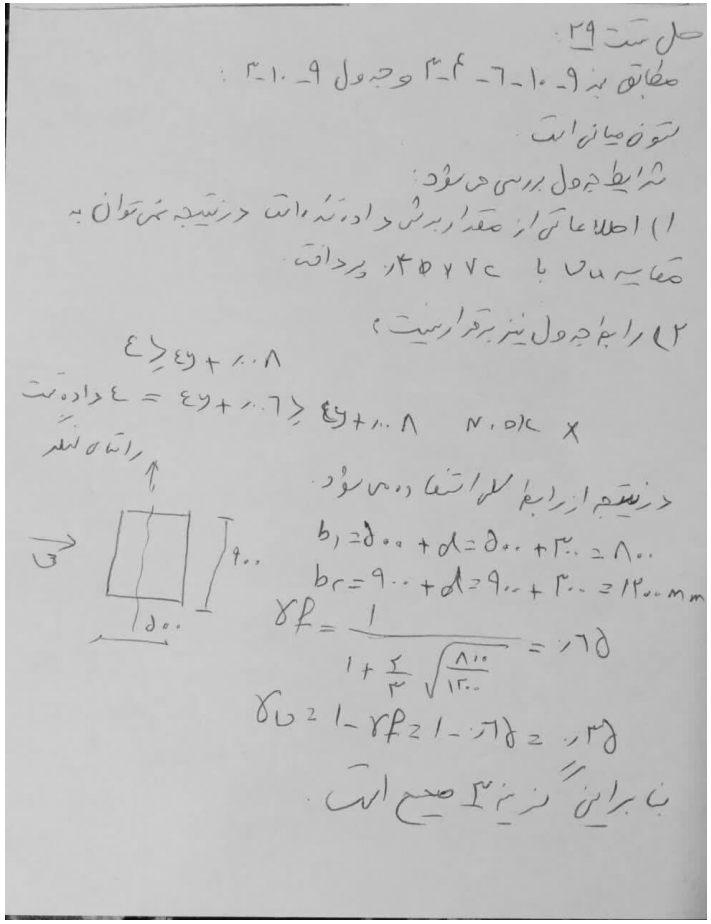 حل تست ۲۹:
مطابق بند ۹-۱۰-۶-۴-۳ و جدول ۹-۱۰-۳ :
ستون میانی است
شرایط جدول بررسی می شود:
۱) اطلاعاتی از مقدار برش داده نشده است در نتیجه نمی توان به
مقایسه vu با ۰٫۴ϕvc پرداخت.
۲) رابطه جدول نیز برقرار نیست:
ε ≥ εy + ۰٫۰۰۸
ε داده تست = εy + ۰٫۰۰۶ ≥ εy + ۰٫۰۰۸ N.ok ×
راستای لنگر
در نتیجه از رابطه کلی استفاده می شود.
b۱ = ۵۰۰ + d = ۵۰۰ + ۳۰۰ = ۸۰۰
b۲ = ۹۰۰ + d = ۹۰۰ + ۳۰۰ = ۱۲۰۰ mm
۹۰۰
۵۰۰
γf = ۱ / (۱ + ۲/۳ √(۸۰۰/۱۲۰۰)) = ۰٫۶۵
γv = ۱ - γf = ۱ - ۰٫۶۵ = ۰٫۳۵
بنابراین گزینه ۳ صحیح است.